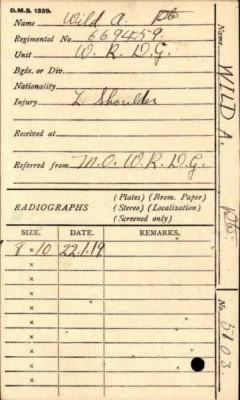 D.M.S. 1339.
Name Wild A. Pte
Regimental No 669459.
Unit W. R. D. G.
Bgde. or Div.
Nationality
Injury L. Shoulder
Received at
Referred from M.O. W.R.D.G.
RADIOGRAPHS
(Plates) (Brom. Paper)
(Stereo) (Localization)
(Screened only)
SIZE. DATE. REMARKS.
8 × 10 22.1.19
×
×
×
×
×
×
×
×
Name WILD A. Pte.
No. 5103